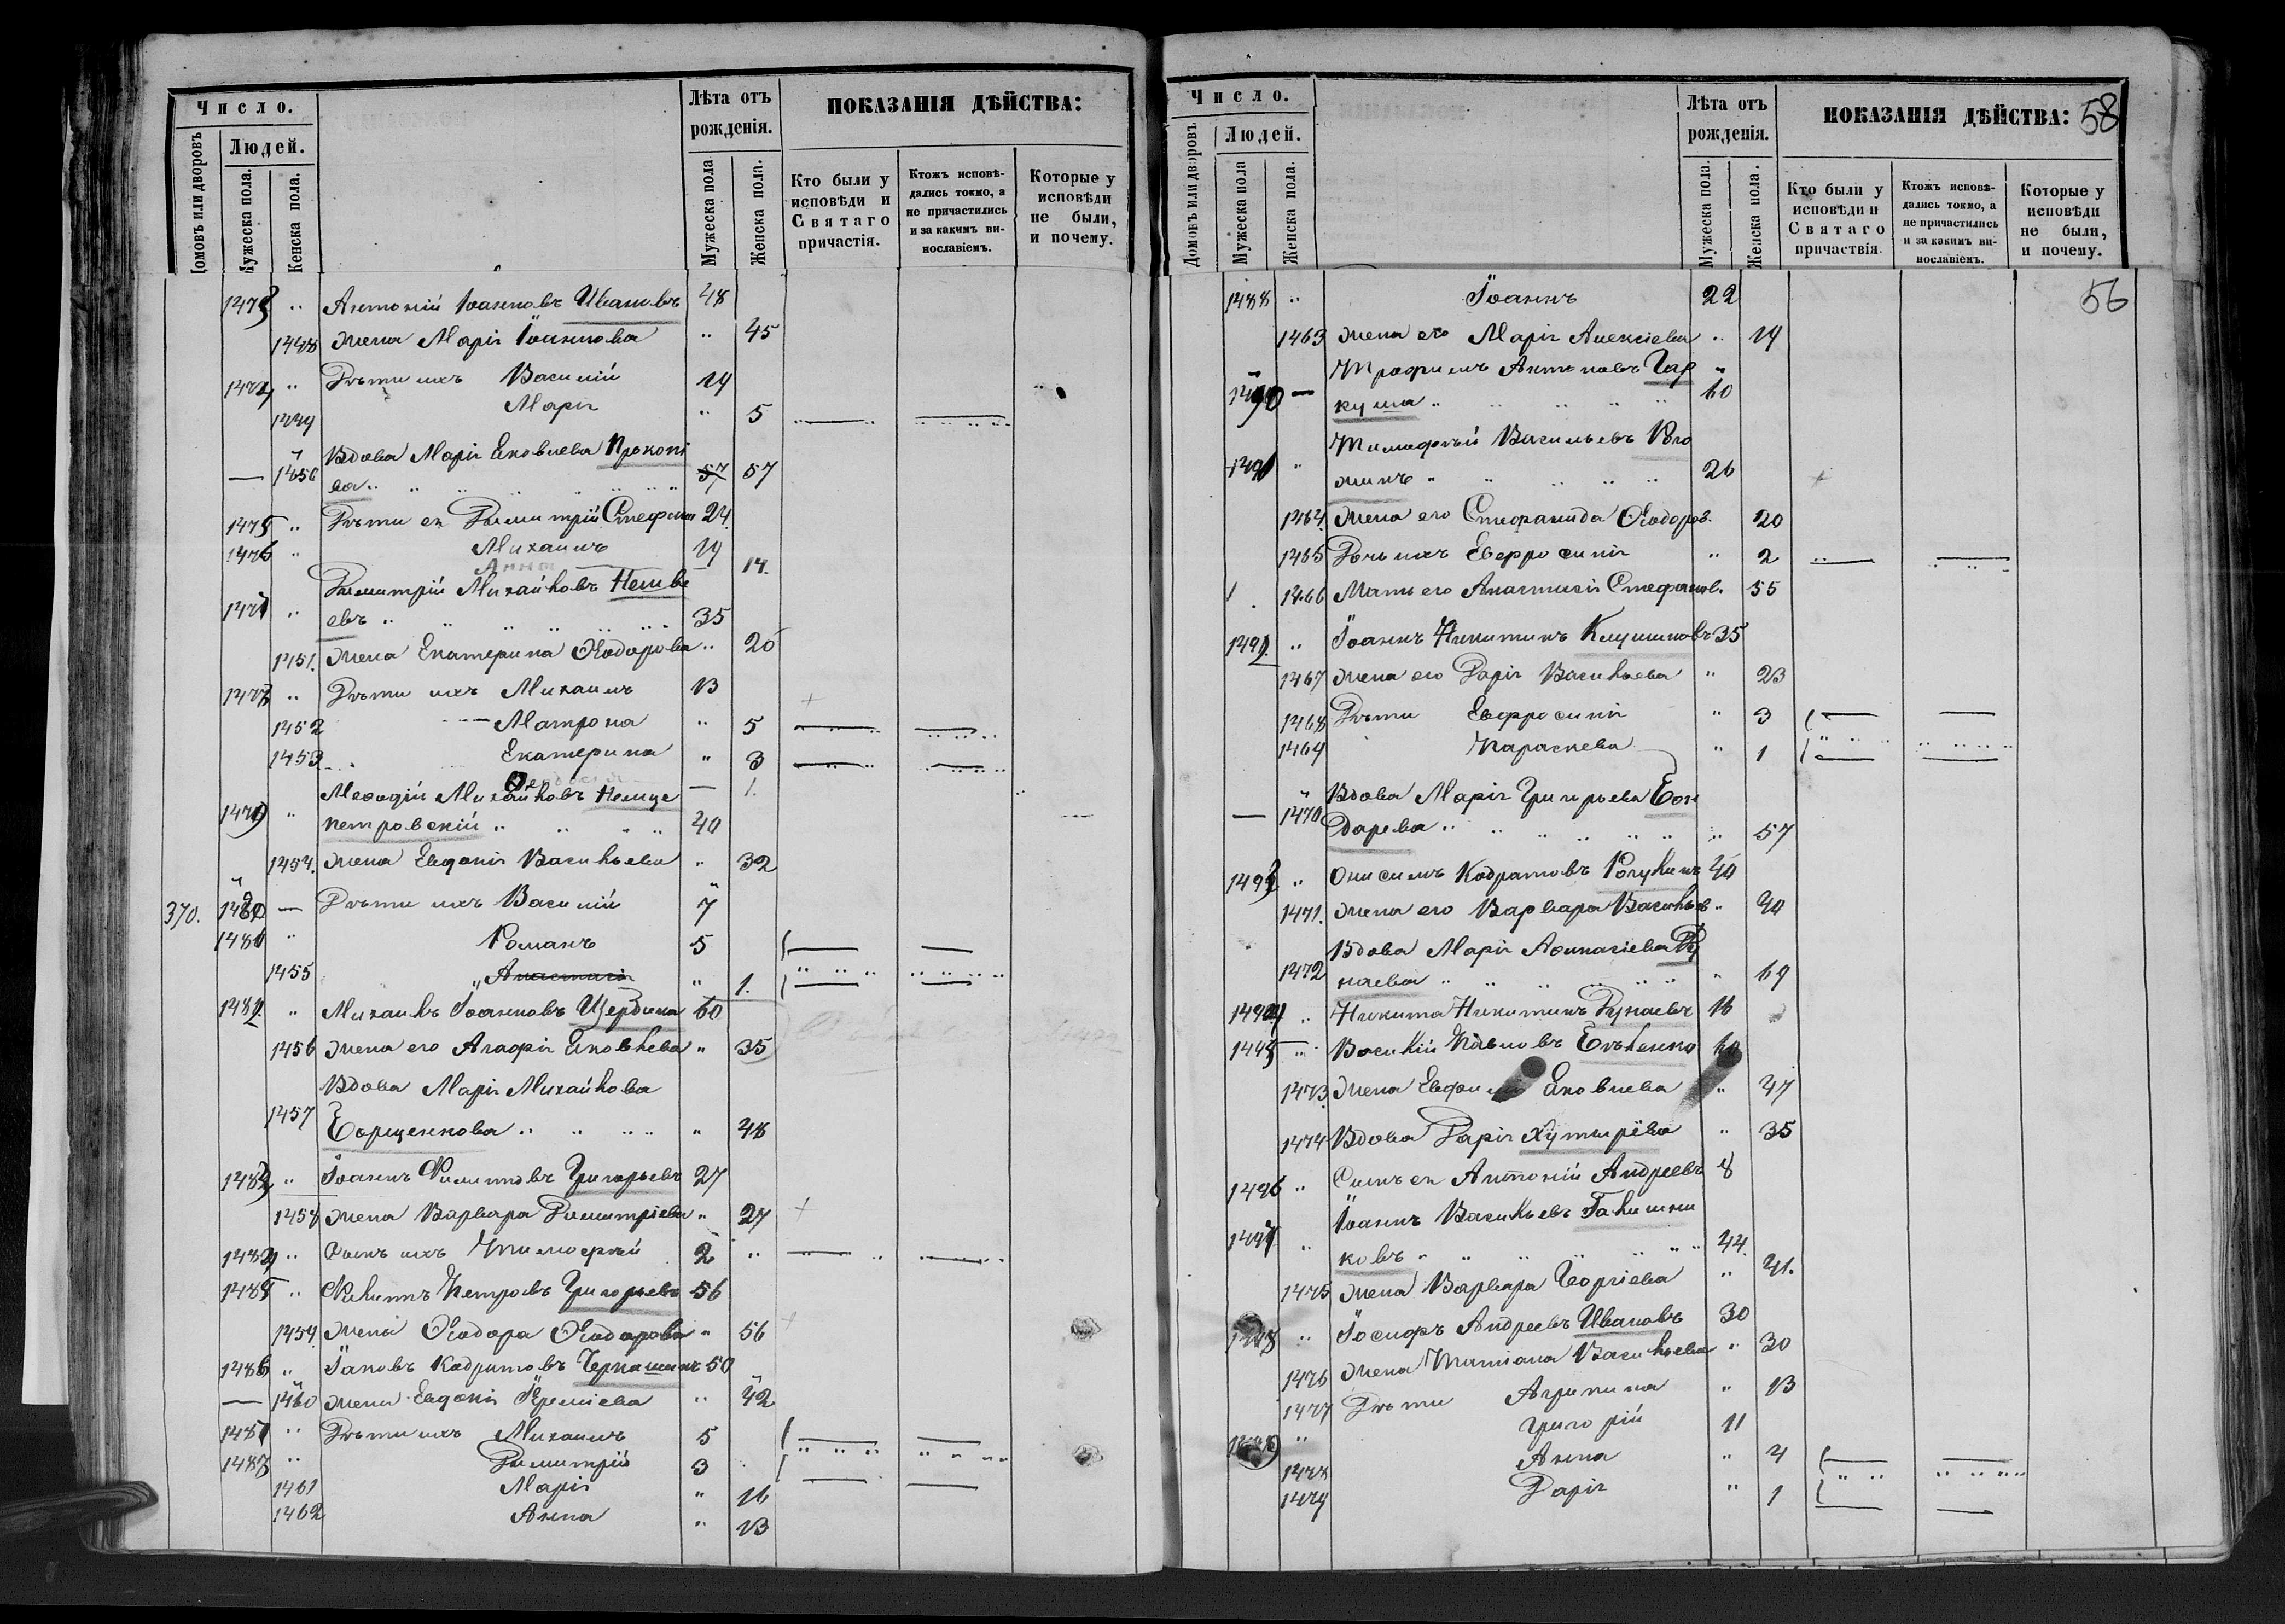 Число.
Лѣта отъ рожденія.
ПОКАЗАНІЯ ДѢЙСТВА:
Людей.
Мужеска пола.
Женска пола.
Кто были у исповѣди и Святаго причастія.
Ктожъ исповѣдались токмо, а не причастились и за какимъ винословіемъ.
Которые у исповѣди не были, и почему.
Антоній Іоанновъ Ивановъ 48
1448 жена Марія Іоаннова 45
Дѣти ихъ Василій 19
1449 Марія 5
Вдова Марія Яковлева Прокопі
ева 57 57
1475 Дѣти ея Димитрій Стефан 24
1476 Михаилъ 19
Анна 14
Димитрій Михайловъ
евъ 35
1451. жена Екатерина Ѳеодорова 26
1478 Дѣти ихъ Михаилъ 13
1452 Матрона 5
1453 Екатерина 3
Ѳеодосія 1.
Меѳодій Михайловъ
петровскій 40
1454. жена Евдокія Васильева 32
370. 1480 Дѣти ихъ Василій 7
1481 Романъ 5
1455 Анастасія 1.
1482 Михаилъ Іоанновъ Щербина 60
1456 жена его Агафія Яковлева 35
Вдова Марія Михайлова
1457 Борщенкова 48
1483 Іоаннъ Филипповъ Григорьевъ 27
1458 жена Варвара Димитріева 27
1484 Сынъ ихъ Тимофѣй 2
1485 Филиппъ Петровъ Григорьевъ 56
1459 жена Ѳеодора Ѳеодорова 56
1486 Іаковъ Кодратовъ 50
1460 жена Евдокія 42
1487 Дѣти ихъ Михаилъ 5
1488 Димитрій 3
1461 Марія 16
1462 Анна 13
Число.
Лѣта отъ рожденія.
ПОКАЗАНІЯ ДѢЙСТВА:
58
Домовъ или дворовъ.
Людей.
Мужеска пола
Женска пола.
Мужеска пола.
Женска пола.
Кто были у исповѣди и Святаго причаствія.
Ктожъ исповѣдались токмо, а не причастились и за какимъ винословіемъ.
Которые у исповѣди не были, и почему.
56
1488 Іоаннъ 22
1463 жена его Марія Алексіева 19
Трофимъ Антоновъ Гар
1490 куша 60
Тимофѣй Васильевъ Рого
1491 жинъ 26
1464. жена его Стефанида Ѳеодоров. 20
1465 Дочь ихъ Евфросинія 2
1466 Мать его Анастасія Стефанов. 55
1492 Іоаннъ Никитинъ 35
1467 жена его Дарія Васильева 23
1468 Дѣти Евфросинія 3
1469 Параскева 1
Вдова Марія Григорьева Бон
1470 дарева 57
1493 Онисимъ Кодратовъ 40
1471. жена его Варвара Васильев 40
Вдова Марія Аѳанасіева Ру
1472 наева 69
1494 Никита Никитинъ Рунаевъ 16
1495 Василій Павловъ 60
1473 жена Евфимія Яковлева 47
1474 Вдова Дарія Хутырёва 35
1496 Сынъ ея Антоній Андреевъ 8
Іоаннъ Васильевъ
1497 ковъ 44.
1475 жена Варвара Георгіева 41.
1498 Іосифъ Андреевъ Ивановъ 30
1476 жена Татіана Васильева 30
1477 Дѣти Агрипина 13
Григорій 11
1478 Анна 4
1479 Дарія 1